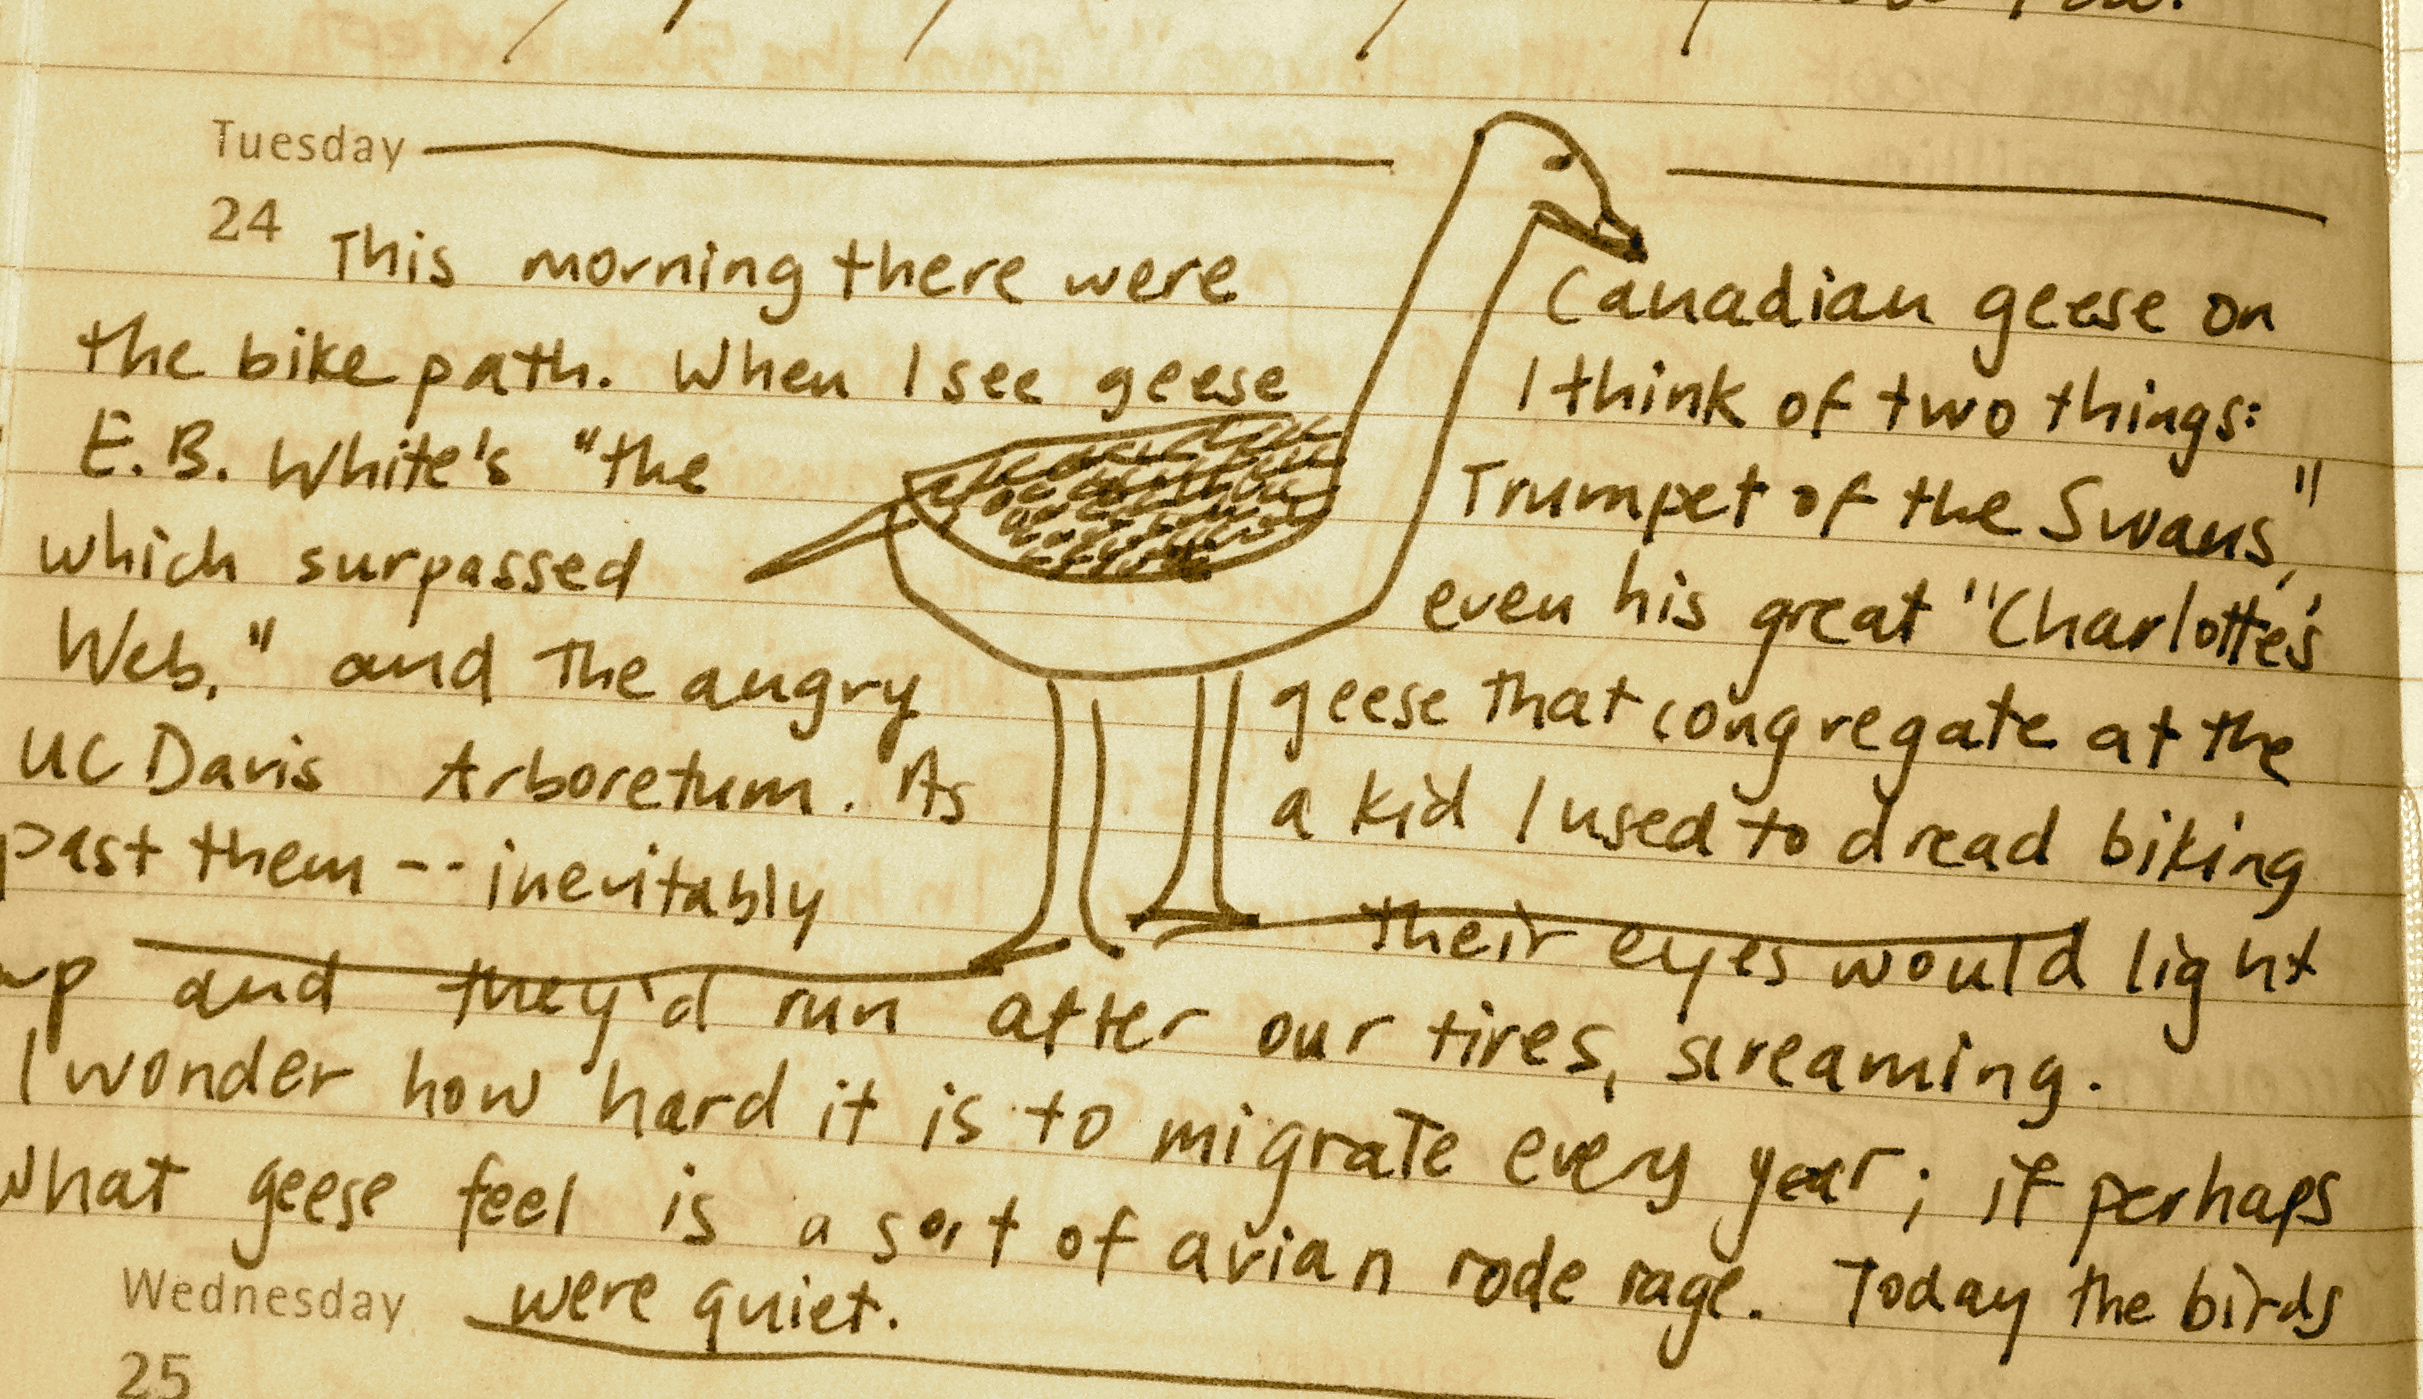 Tuesday
24
This morning there were Canadian geese on
the bike path. When I see geese I think of two things:
E.B. White's "the Trumpet of the Swans,"
which surpassed even his great "Charlotte's
Web," and the angry geese that congregate at the
UC Davis Arboretum. As a kid I used to dread biking
past them -- inevitably their eyes would light
up and they'd run after our tires, screaming.
I wonder how hard it is to migrate every year; if perhaps
what geese feel is a sort of avian rode rage. Today the birds
were quiet.
Wednesday
25